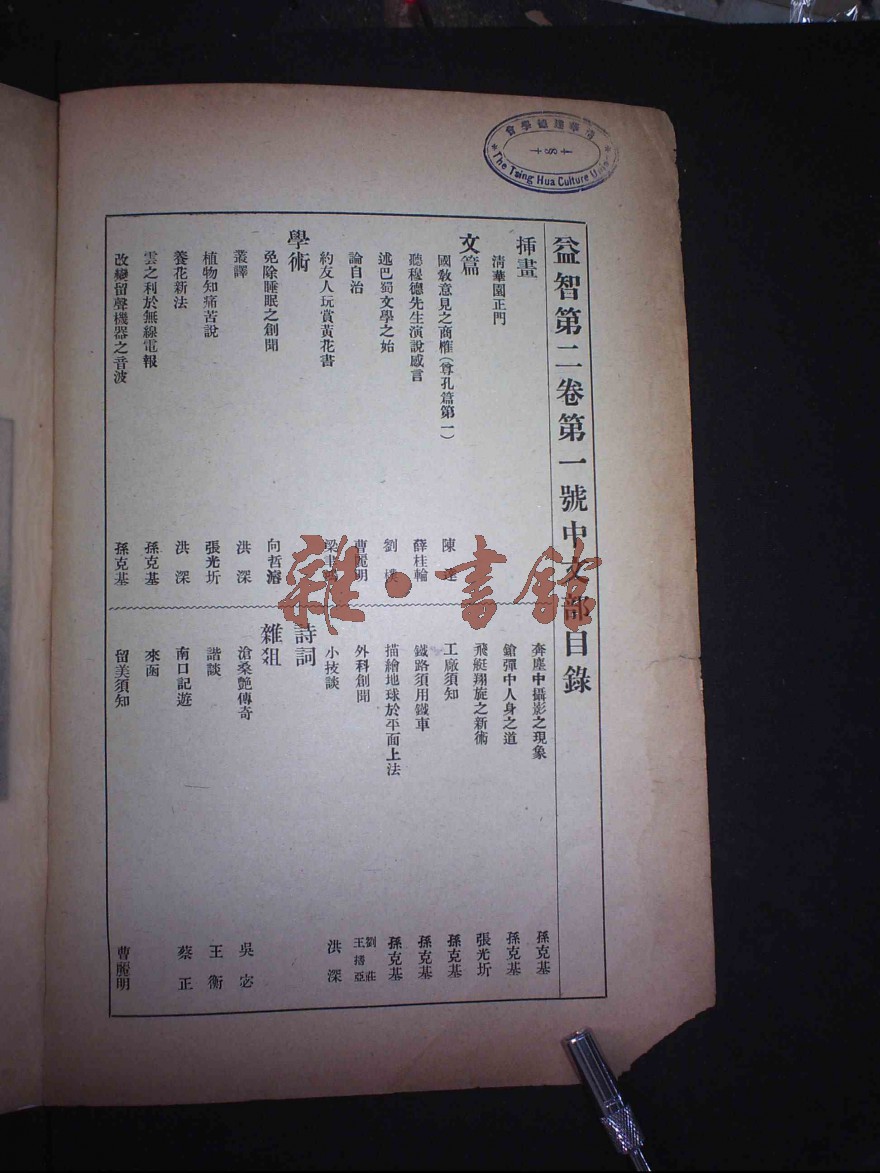 The Tsing Hua Culture
益智第二卷第一號中文部目錄
插畫
清華園正門
文篇
國敎意見之商榷(尊孔篇第一) 陳
聽穆德先生演說感言 薛桂輪
述巴蜀文學之始 劉樸
論自治 曹麗明
約友人玩賞黃花書
學術
免除睡眠之創聞 向哲濬
叢譯 洪深
植物知痛苦說 張光圻
養花新法 洪深
雲之利於無線電報 孫克基
改變留聲機器之音波 孫克基
奔塵中攝影之現象 孫克基
鎗彈中人身之道 孫克基
飛艇翔旋之新術 張光圻
工廠須知 孫克基
鐵路須用鐵車 孫克基
描繪地球於平面上法 孫克基
外科創聞 劉莊 王 亞
小技談 洪深
詩詞
雜俎
滄桑艶傳奇 吳宓
諧談 王衡
南口記遊 蔡正
來函
留美須知 曹麗明
雜·書館